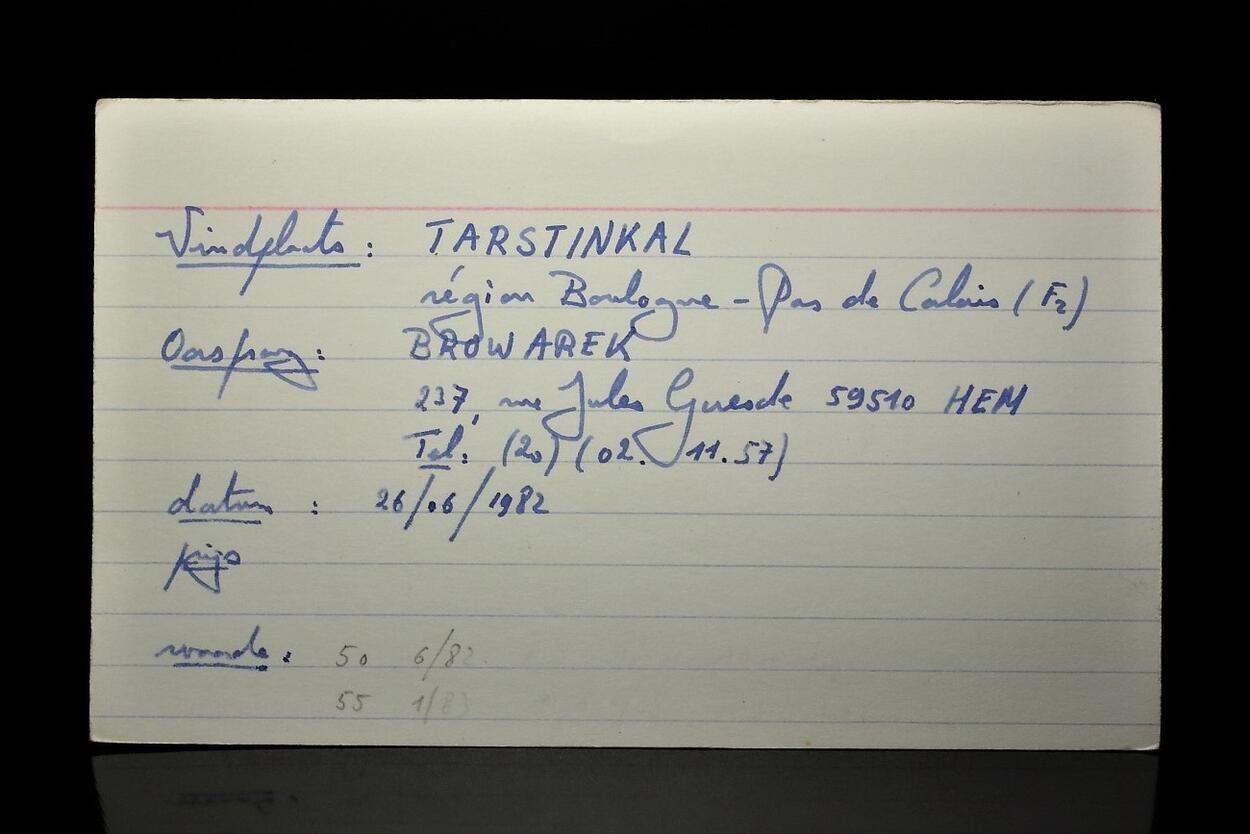 Vindplaats : TARSTINKAL
région Boulogne - Pas de Calais (F2)
Oorsprong : BROWAREK
237, rue Jules Guesde 59510 HEM
Tel. (20) (02. 11.57)
datum : 26/06/1982
prijs
waarde : 50 6/82
55 1/83